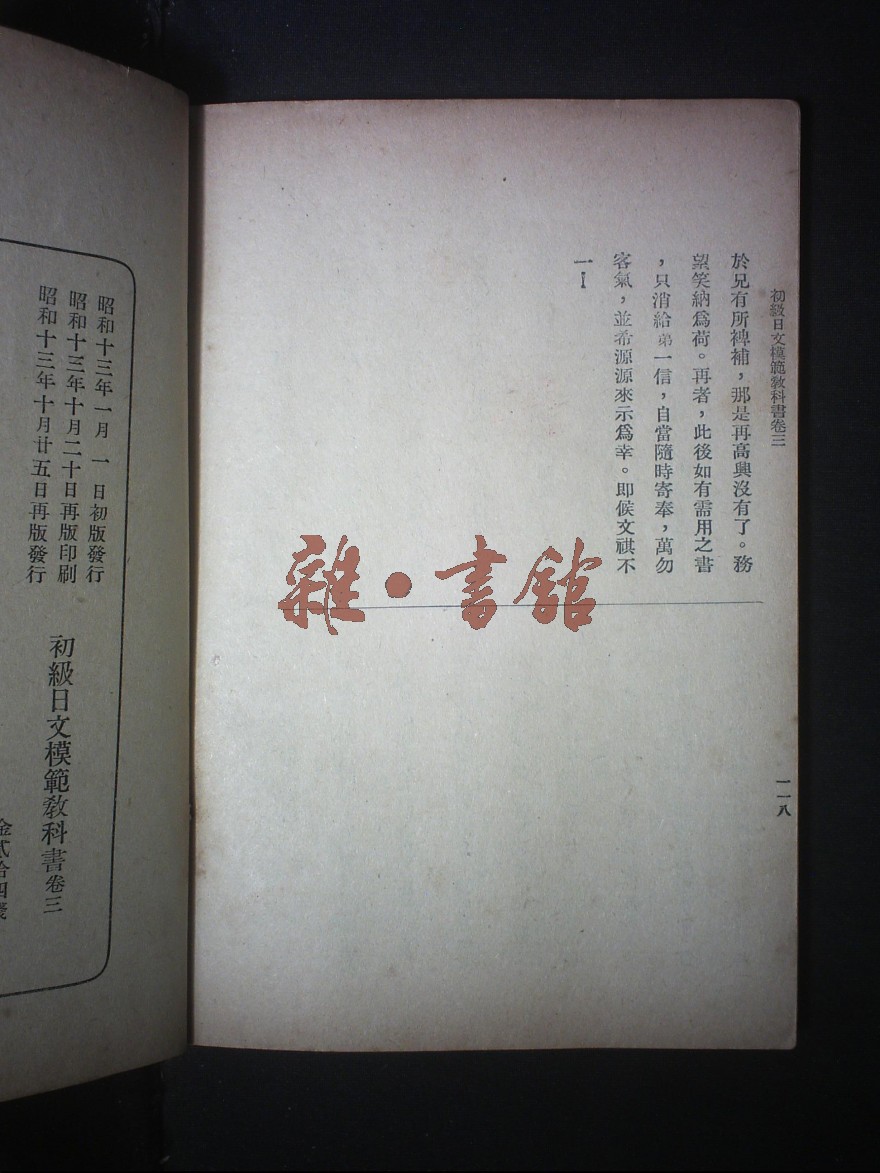 初級日文模範敎科書卷三
一一八
於兄有所裨補，那是再高興沒有了。務
望笑納爲荷。再者，此後如有需用之書
，只消給弟一信，自當隨時寄奉，萬勿
客氣，並希源源來示爲幸。即候文祺不
一I
雜·書館
昭和十三年一月一日初版發行
昭和十三年十月二十日再版印刷
昭和十三年十月廿五日再版發行
初級日文模範敎科書卷三
金貳拾四錢